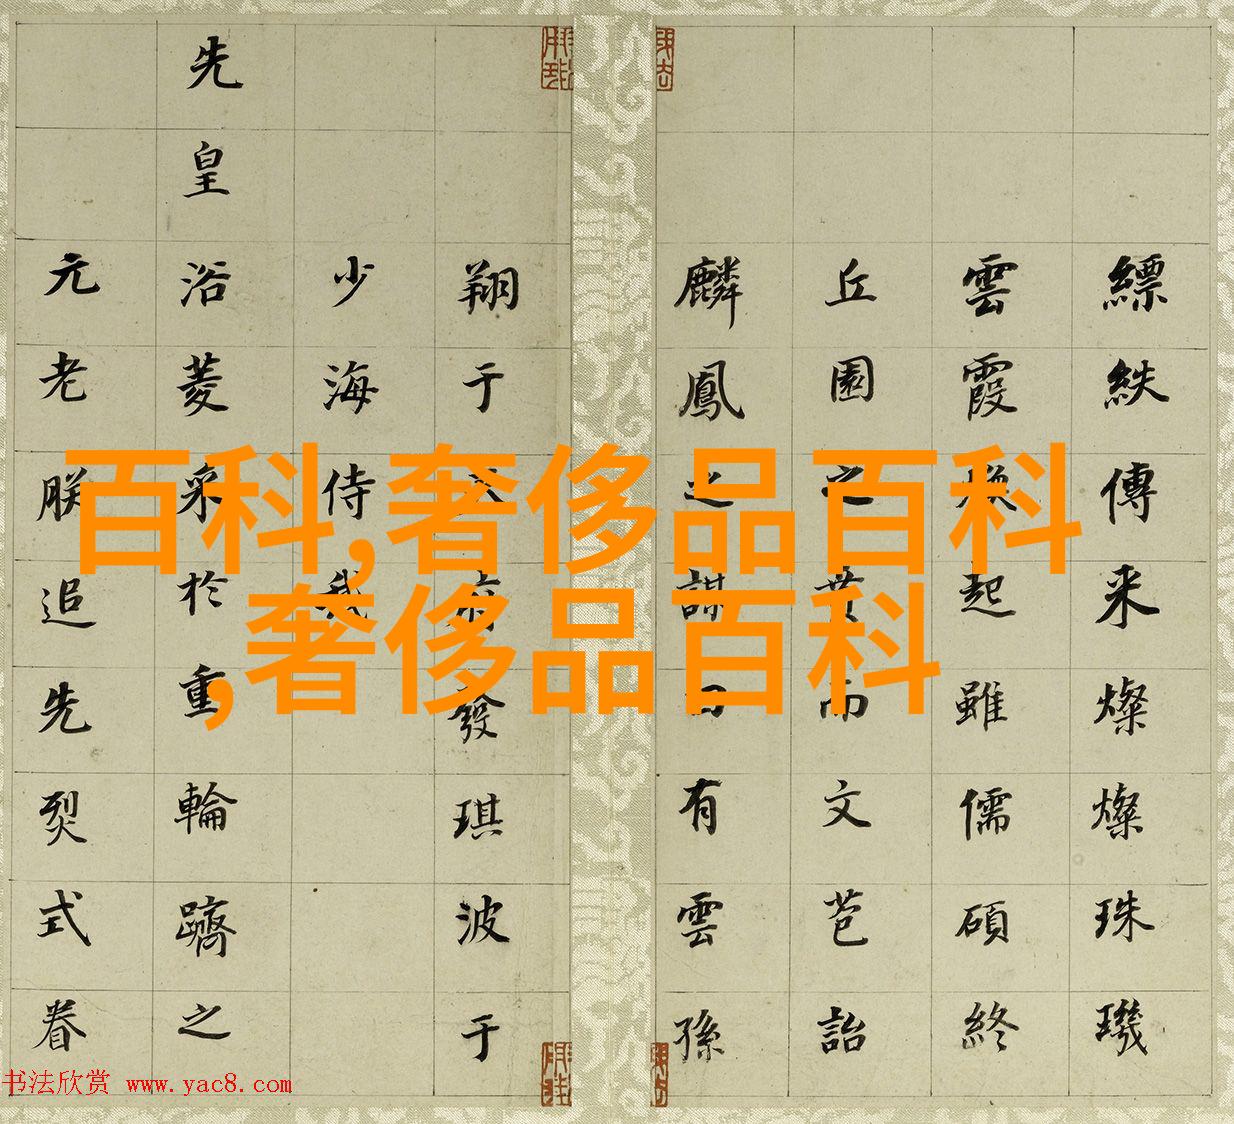 縹紩傳来燦燦珠璣
雲霞起雖儒碩終
丘園之賁而文苞詒
麟鳳之謀有雲孫
翔于天府發琪波于
少海侍我
先皇浴菱采於重輪躋之
元老朕追先烈式眷
百科,奢侈品百科
,奢侈品百科
书法欣赏 www.yac8.com